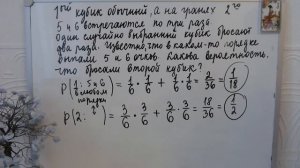 1ый кубик обычный, а на гранях 2го
5 и 6 встречаются по три раза.
Один случайно выбранный кубик бросают
два раза. Известно, что в каком-то порядке
выпали 5 и 6 очков. Какова вероятность,
что бросали второй кубик?
P(1: 5 и 6 в любом порядке) = 1/6 · 1/6 + 1/6 · 1/6 = 2/36 = 1/18
P(2: —"—) = 3/6 · 3/6 + 3/6 · 3/6 = 18/36 = 1/2